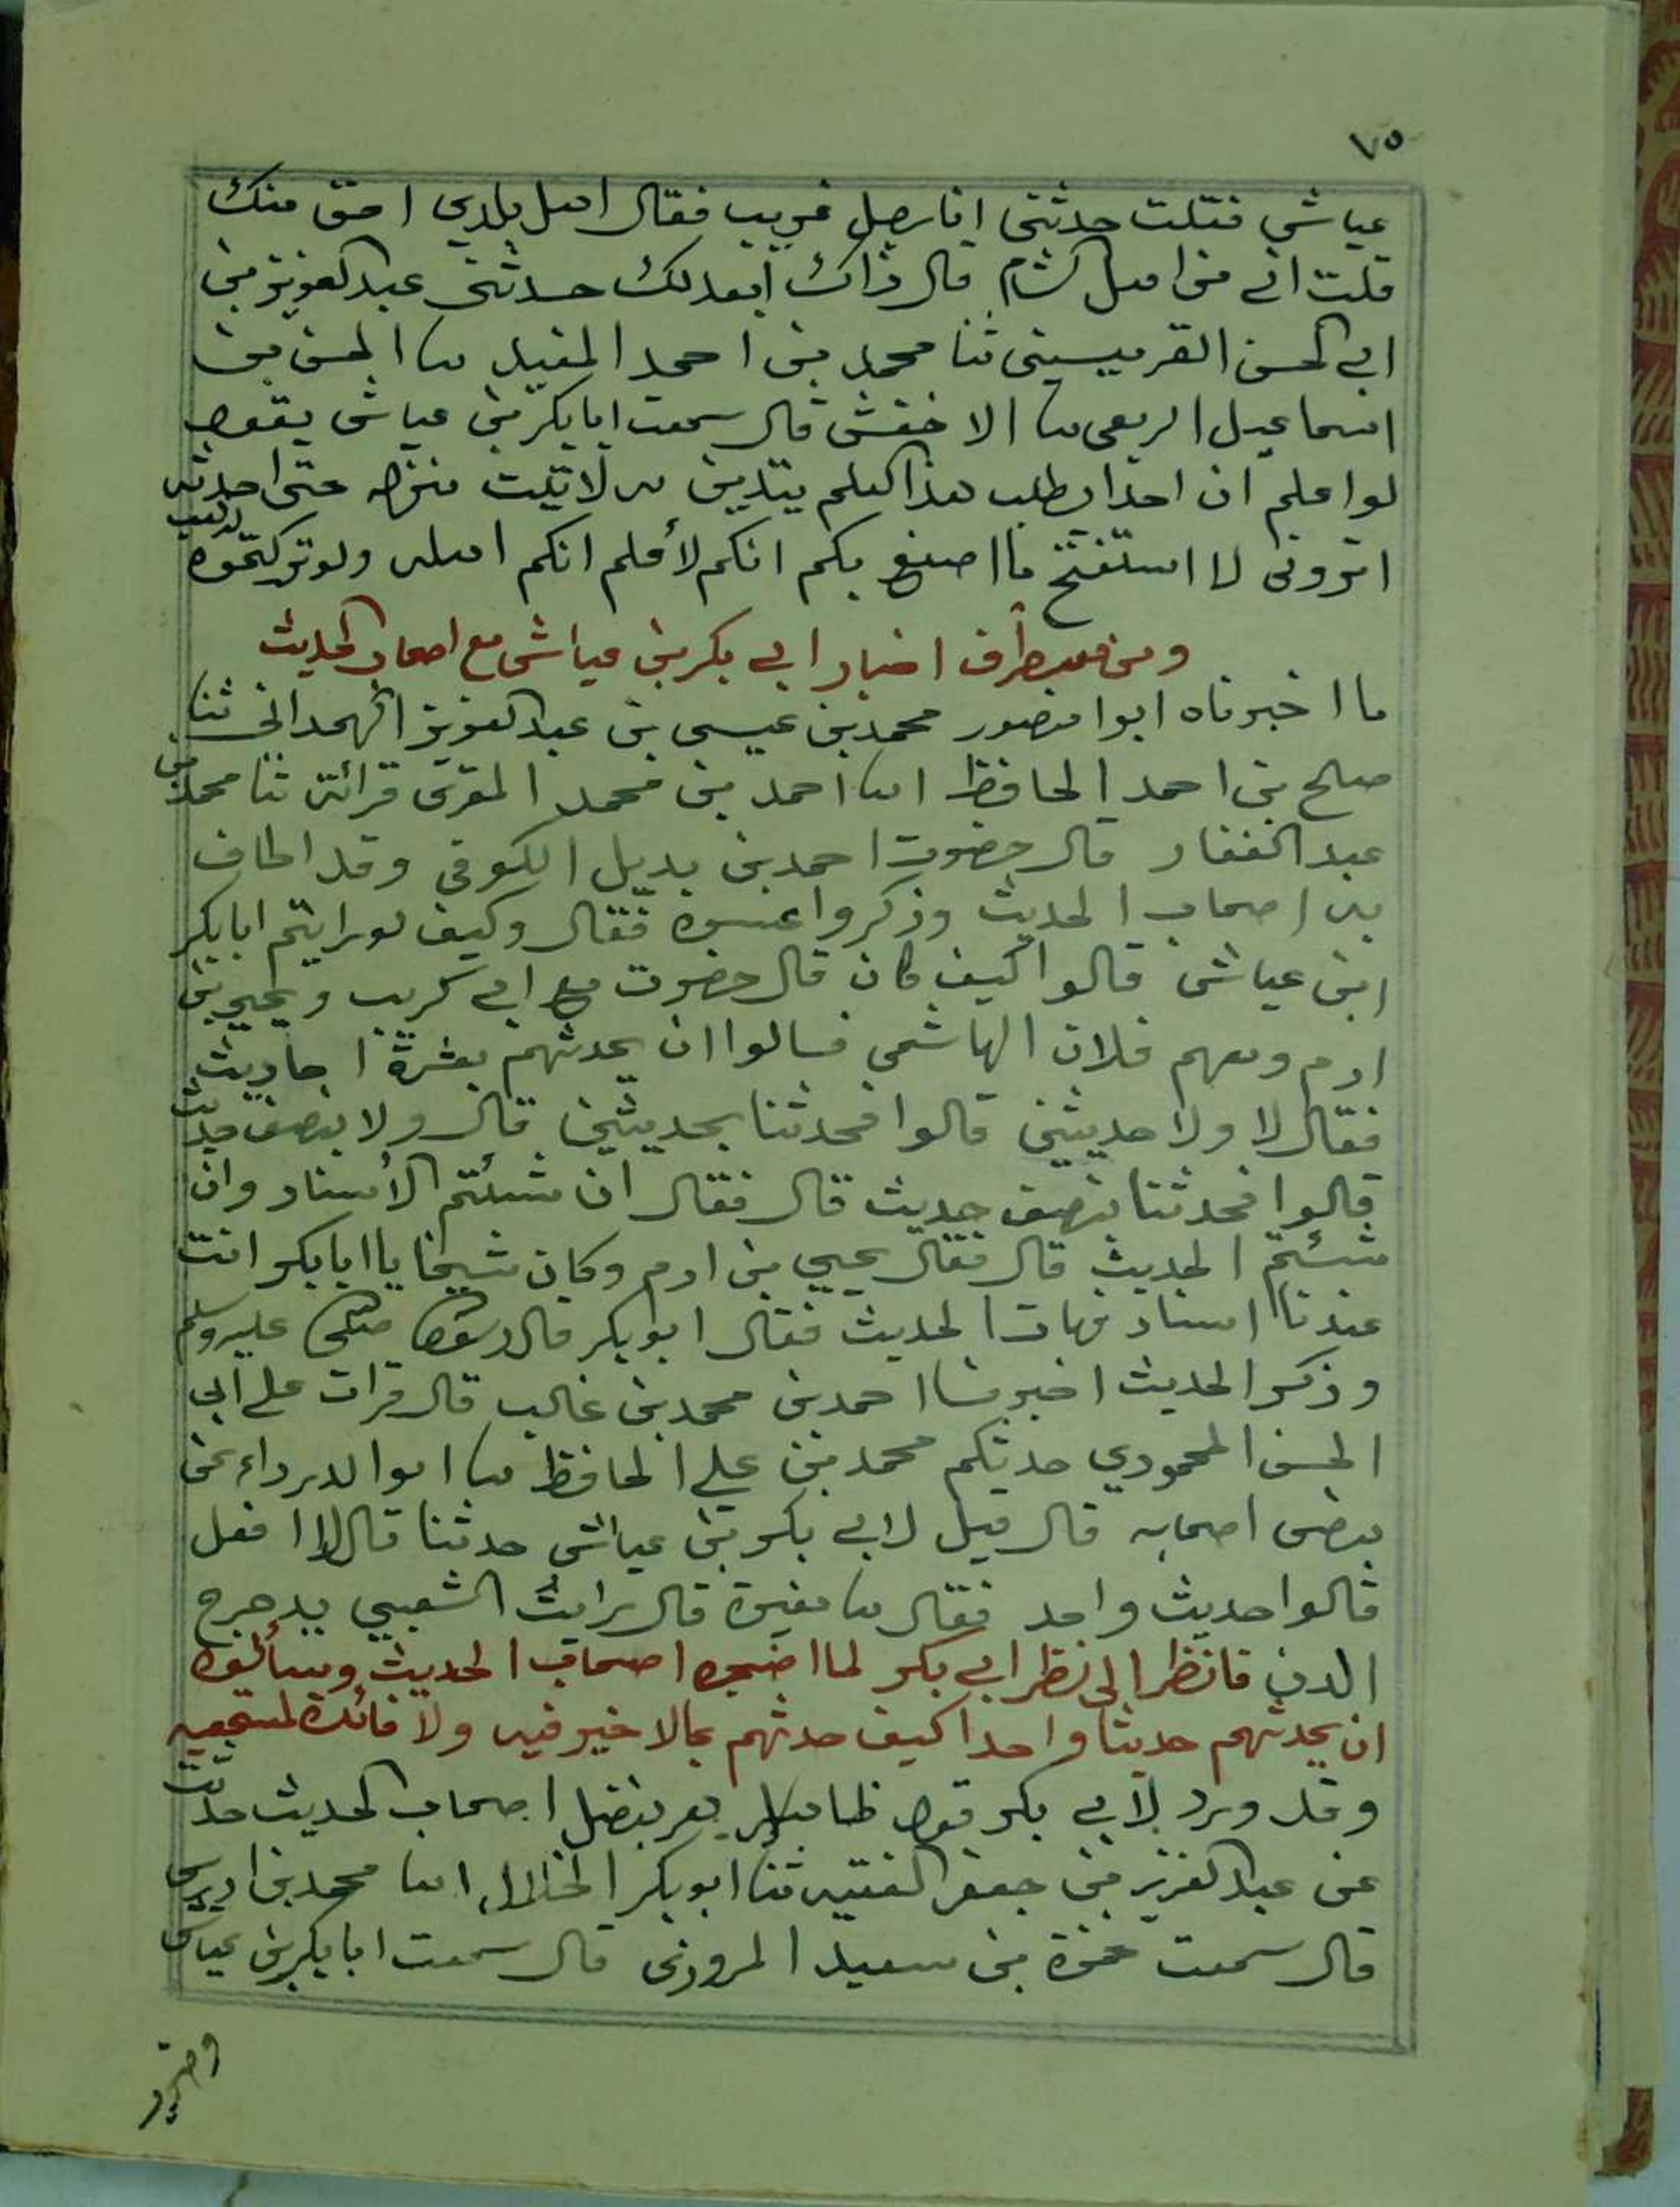 ٧٥
عياش فقلت حدثني انا رجل غريب فقال اهل بلدي احق منك
قلت اني من اهل الشام قال ذاك ابعد لك حدثني عبد العزيز بن
ابي الحسن القرميسيني ثنا محمد بن احمد المفيد ثنا الحسن بن
اسماعيل الربعي ثنا الاخفش قال سمعت ابا بكر بن عياش يقول
لو اعلم ان احدا يطلب هذا العلم يتدين به لاتيت منزله حتى احدثه
اتروني لا استفتح ما اصنع بكم انكم لأعلم انكم اهله ولو تركتموه لذهب
ومن اخبار ابي بكر بن عياش مع اصحاب الحديث
ما اخبرناه ابوا منصور محمد بن عيسى بن عبد العزيز الهمداني ثنا
صلح بن احمد الحافظ انا احمد بن محمد المقرئ قرائة ثنا محمد بن
عبد الغفار قال حضرت احمد بن بديل الكوفي وقد اطاف
به اصحاب الحديث وذكروا عسره فقال وكيف لو رايتم ابا بكر
ابن عياش قالوا كيف كان قال حضرت مع ابي كريب ويحيى بن
ادم ومعهم فلان الهاشمي فسالوا ان يحدثهم بعشرة احاديث
فقال لا ولا حديثين قالوا فحدثنا بحديثين قال ولا بنصف حديث
قالوا فحدثنا بنصف حديث قال فقال ان شئتم الأسناد وان
شئتم الحديث قال فقال يحيى بن ادم وكان شيخا يا ابا بكر انت
عندنا اسناد فهات الحديث فقال ابو بكر قال رسول الله صلى الله عليه وسلم
وذكر الحديث اخبرنا احمد بن محمد بن غالب قال قرات على ابي
الحسن المحمودي حدثكم محمد بن علي الحافظ ثنا ابوا الدرداء عن
بعض اصحابه قال قيل لابي بكر بن عياش حدثنا قال لا افعل
قالوا حديث واحد فقال ثنا مغيرة قال رايت الشعبي يدحرج
الدن فانظر الى نظر ابي بكر لما اضجره اصحاب الحديث وسألوه
ان يحدثهم حديثا واحدا كيف حدثهم بمالا خير فيه ولا فائدة لمستمعيه
وقد ورد لابي بكر قول بفضل اصحاب الحديث حدثت
عن عبد العزيز بن جعفر الفقيه ثنا ابو بكر الخلال انا محمد بن ادريس
قال سمعت حمزة بن سعيد المروزي قال سمعت ابا بكر بن عياش